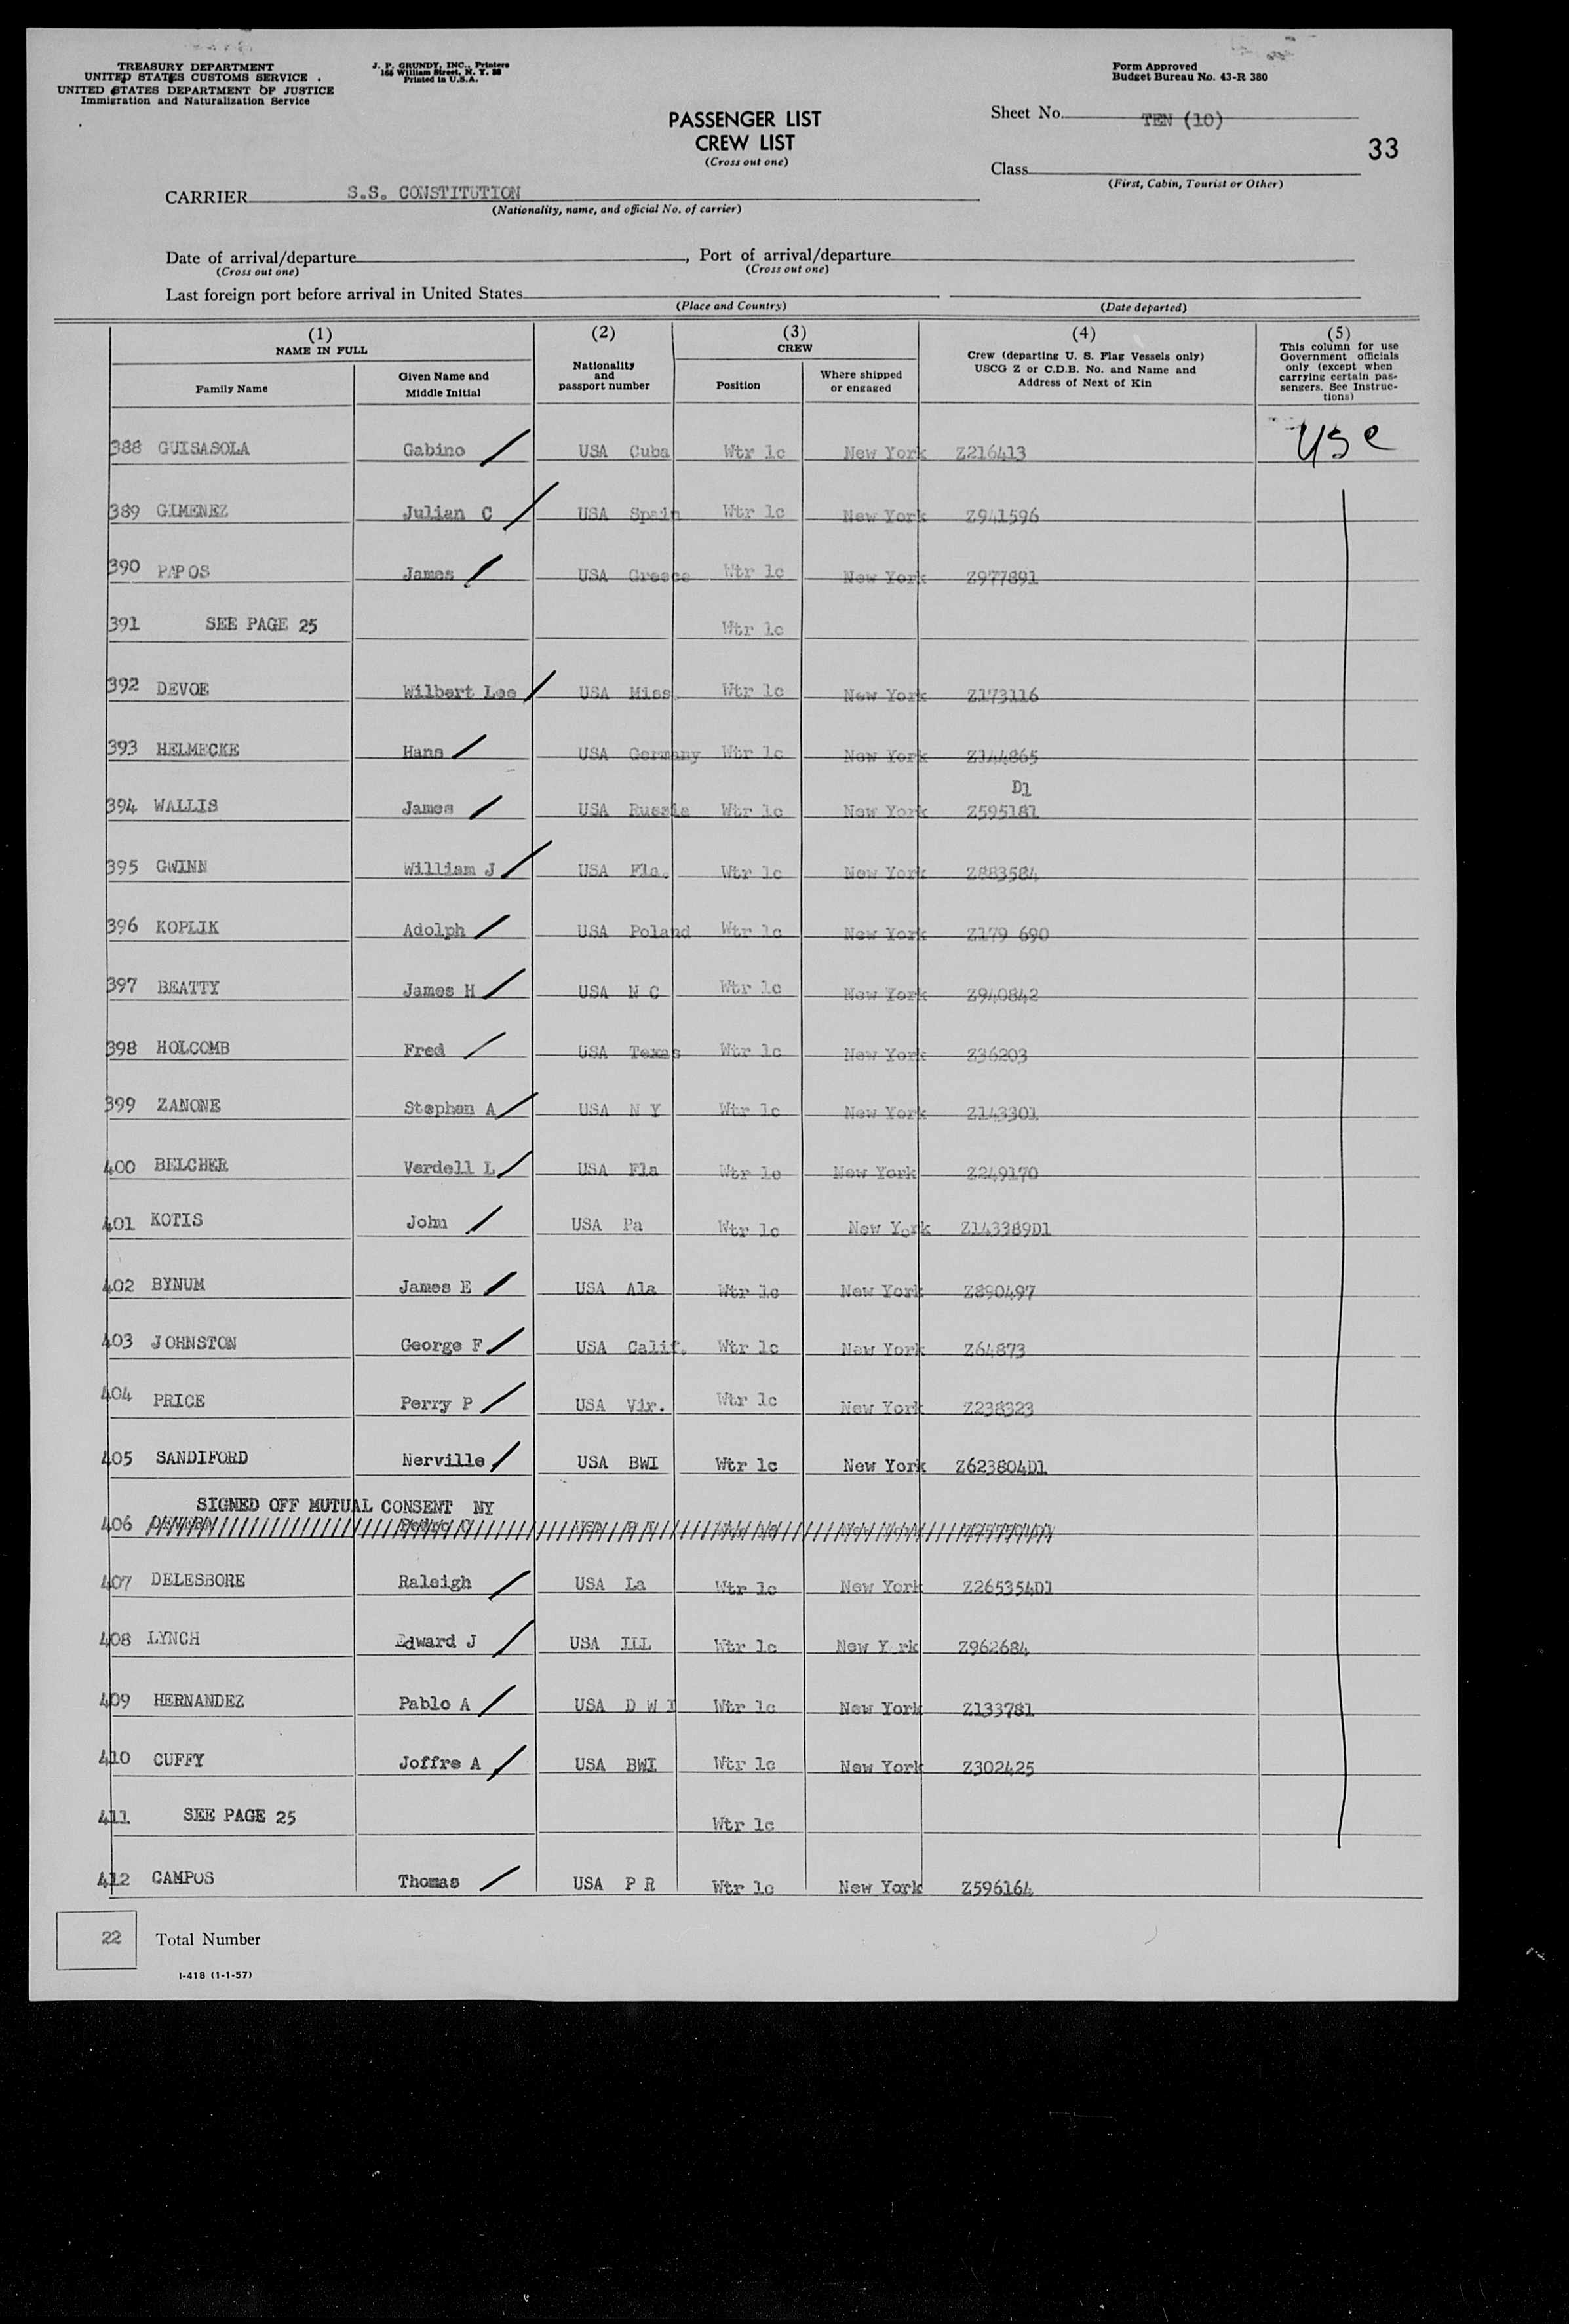 TREASURY DEPARTMENT
UNITED STATES CUSTOMS SERVICE
UNITED STATES DEPARTMENT OF JUSTICE
Immigration and Naturalization Service
J. P. GRUNDY, INC., Printers
165 William Street, N. Y. 38
Printed in U.S.A.
Form Approved
Budget Bureau No. 43-R 380
PASSENGER LIST
CREW LIST
(Cross out one)
Sheet No. TEN (10)
33
Class
(First, Cabin, Tourist or Other)
CARRIER S.S. CONSTITUTION
(Nationality, name, and official No. of carrier)
Date of arrival/departure , Port of arrival/departure
(Cross out one) (Cross out one)
Last foreign port before arrival in United States
(Place and Country) (Date departed)
(1) NAME IN FULL
Family Name
Given Name and Middle Initial
(2) Nationality and passport number
(3) CREW
Position
Where shipped or engaged
(4) Crew (departing U. S. Flag Vessels only) USCG Z or C.D.B. No. and Name and Address of Next of Kin
(5) This column for use Government officials only (except when carrying certain passengers. See Instructions)
388 GUISASOLA Gabino USA Cuba Wtr 1c New York Z216413 USC
389 GIMENEZ Julian C USA Spain Wtr 1c New York Z941596
390 PAPOS James USA Greece Wtr 1c New York Z977891
391 SEE PAGE 25 Wtr 1c
392 DEVOE Wilbert Lee USA Miss Wtr 1c New York Z173116
393 HELMECKE Hans USA Germany Wtr 1c New York Z144865
D1
394 WALLIS James USA Russia Wtr 1c New York Z595181
395 GWINN William J USA Fla. Wtr 1c New York Z883584
396 KOPLIK Adolph USA Poland Wtr 1c New York Z179 690
397 BEATTY James H USA N C Wtr 1c New York Z940842
398 HOLCOMB Fred USA Texas Wtr 1c New York Z36203
399 ZANONE Stephen A USA N Y Wtr 1c New York Z143301
400 BELCHER Verdell L USA Fla Wtr 1c New York Z249170
401 KOTIS John USA Pa Wtr 1c New York Z143389D1
402 BYNUM James E USA Ala Wtr 1c New York Z890497
403 JOHNSTON George F USA Calif. Wtr 1c New York Z64873
404 PRICE Perry P USA Vir. Wtr 1c New York Z238323
405 SANDIFORD Nerville USA BWI Wtr 1c New York Z623804D1
SIGNED OFF MUTUAL CONSENT NY
406
407 DELESBORE Raleigh USA La Wtr 1c New York Z265354D1
408 LYNCH Edward J USA ILL Wtr 1c New York Z962684
409 HERNANDEZ Pablo A USA D W I Wtr 1c New York Z133781
410 CUFFY Joffre A USA BWI Wtr 1c New York Z302425
411 SEE PAGE 25 Wtr 1c
412 CAMPOS Thomas USA P R Wtr 1c New York Z596164
22 Total Number
I-418 (1-1-57)